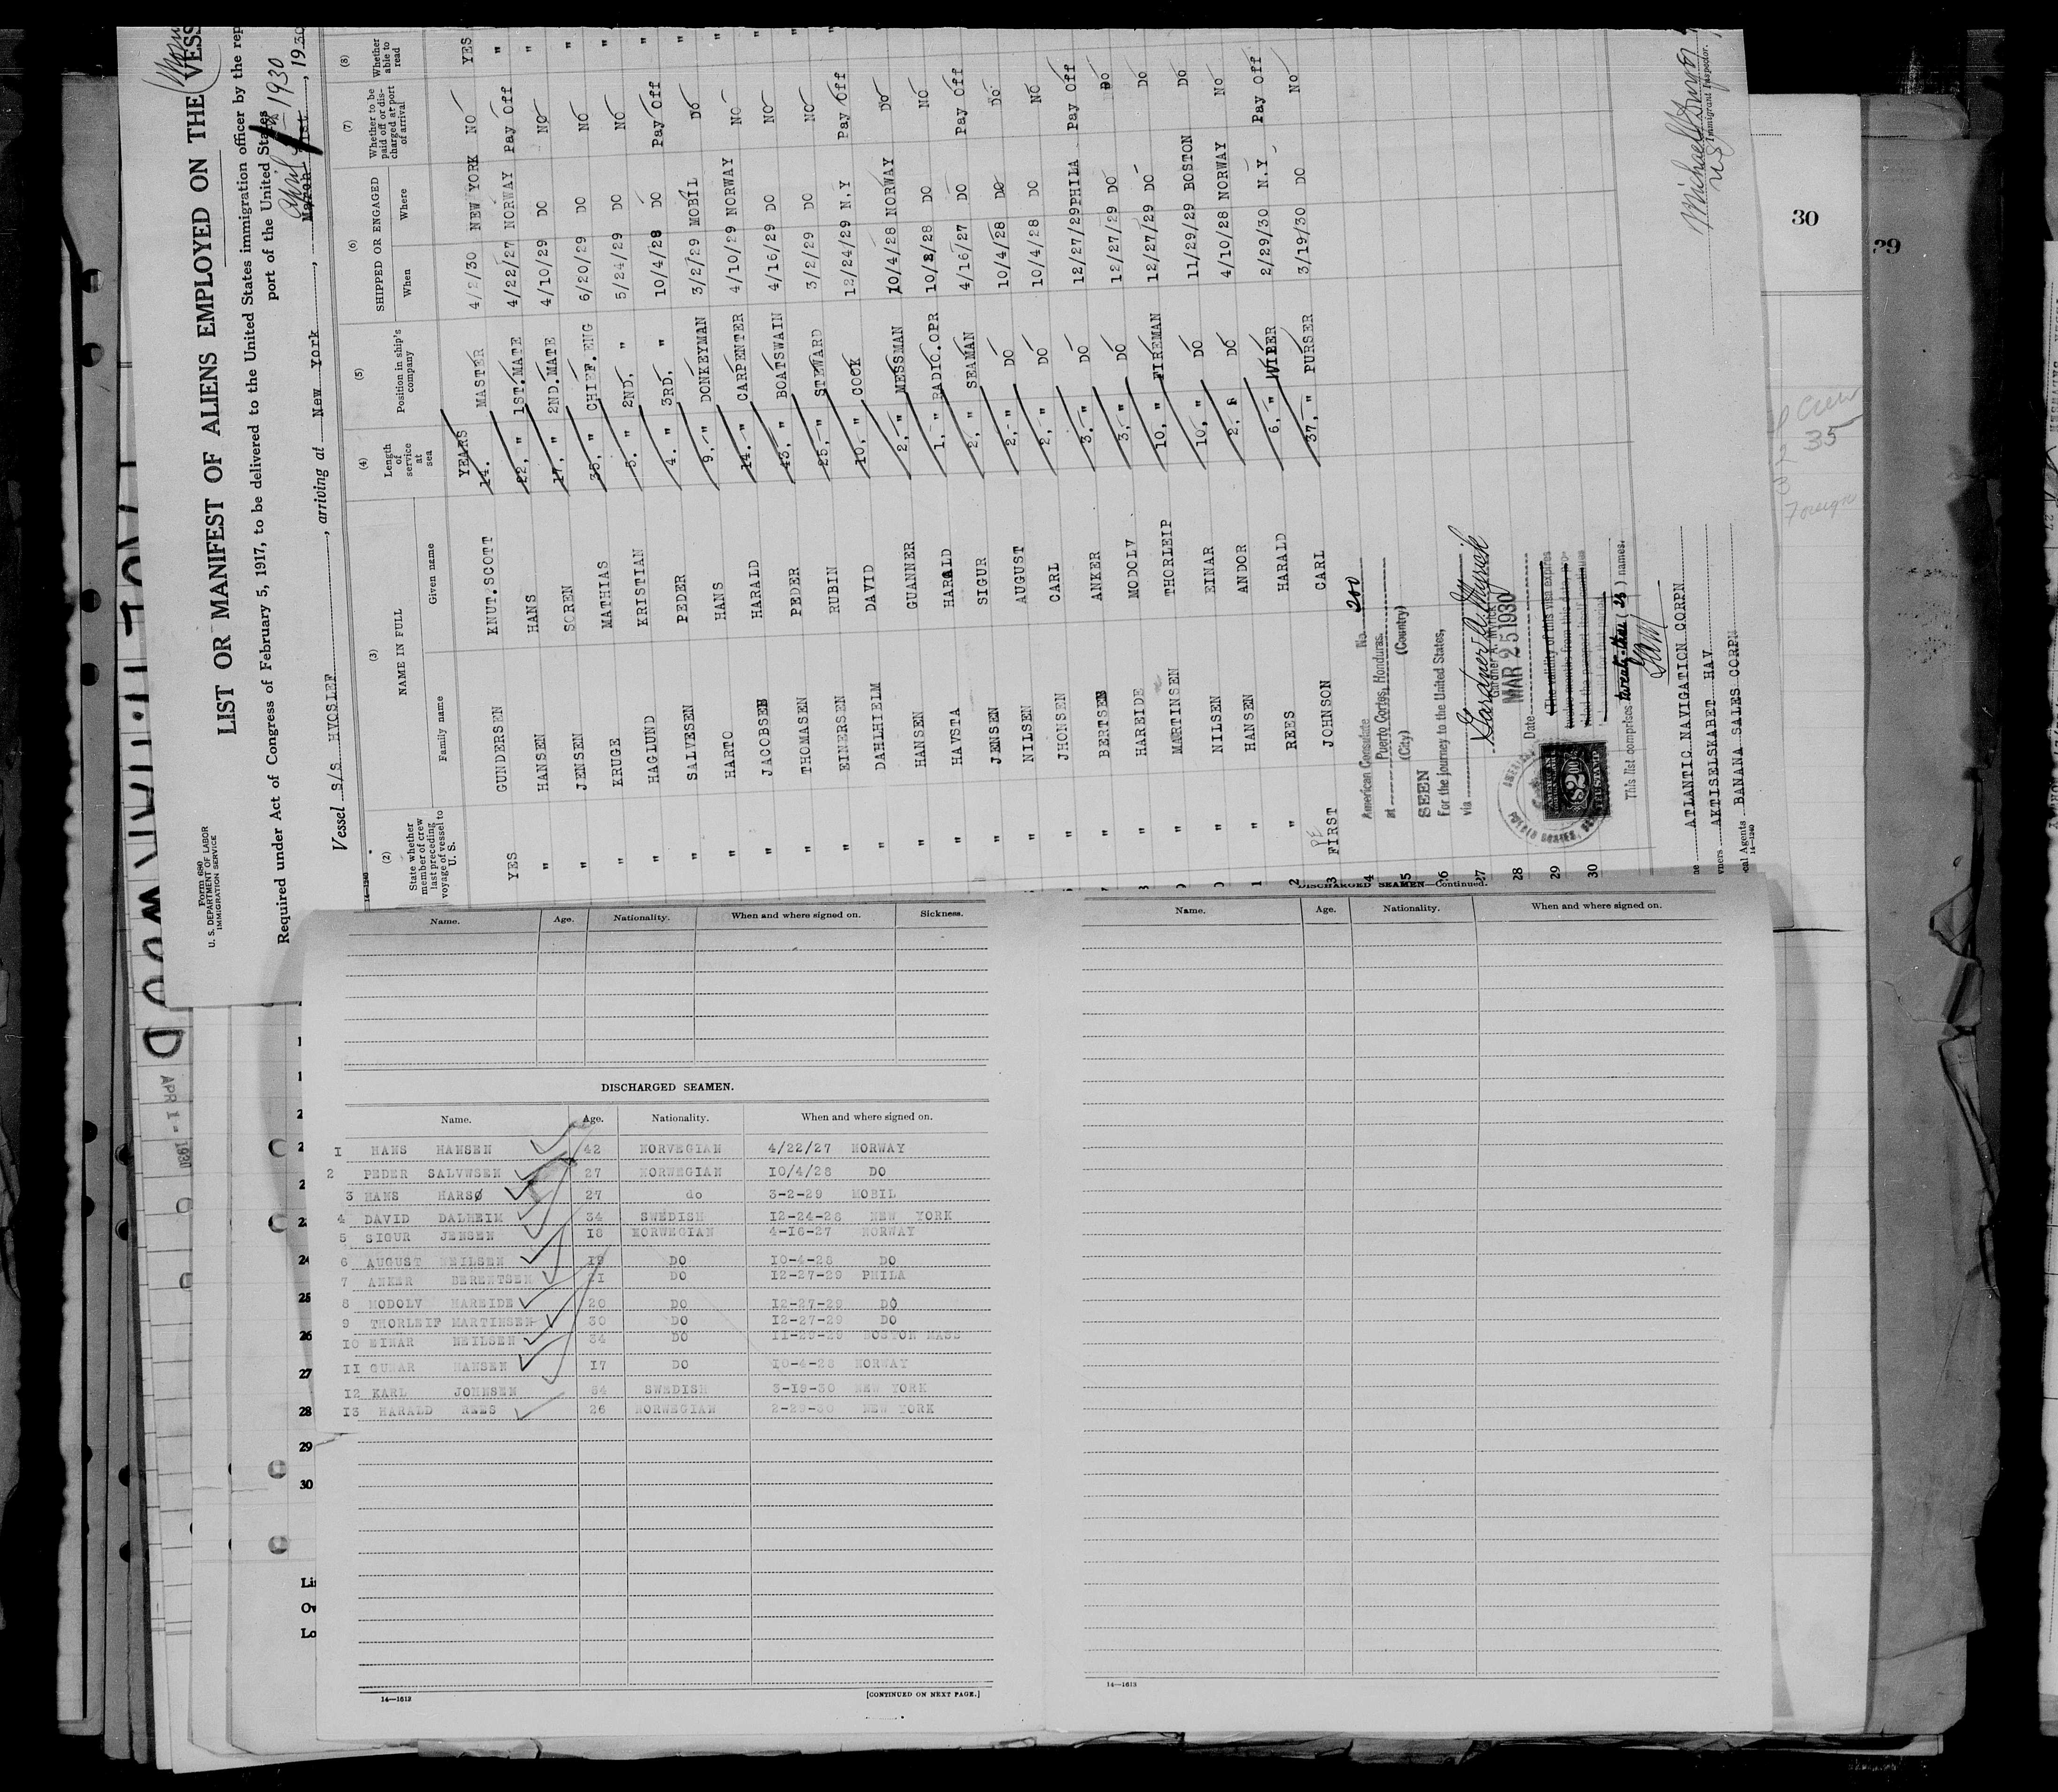 Form 680
U. S. DEPARTMENT OF LABOR
IMMIGRATION SERVICE
LIST OR MANIFEST OF ALIENS EMPLOYED ON THE VESS
Required under Act of Congress of February 5, 1917, to be delivered to the United States immigration officer by the rep
port of the United States
Vessel S/S HVOSLEF, arriving at New York, April 1930 March 31st, 1930
14-1240
(2) (3) (4) (5) (6) (7) (8)
State whether member of crew last preceding voyage of vessel to U. S.
NAME IN FULL
Family name Given name
Length of service at sea
Position in ship's company
SHIPPED OR ENGAGED
When Where
Whether to be paid off or discharged at port of arrival
Whether able to read
YES GUNDERSEN KNUT.SCOTT YEARS 14. MASTER 4/2/30 NEW YORK NO YES
" HANSEN HANS 22, " 1ST.MATE 4/22/27 NORWAY Pay Off "
" JENSEN SOREN 17, " 2ND.MATE 4/10/29 DO NO "
" KRUGE MATHIAS 35, " CHIEF.ENG 6/20/29 DO NO "
" HAGLUND KRISTIAN 5. " 2ND, " 5/24/29 DO NO "
" SALVESEN PEDER 4. " 3RD, " 10/4/28 DO Pay Off "
" HARTO HANS 9, " DONKEYMAN 3/2/29 MOBIL DO "
" JACOBSEN HARALD 14. " CARPENTER 4/10/29 NORWAY NO "
" THOMASEN PEDER 43, " BOATSWAIN 4/16/29 DO NO "
" EINERSEN RUBIN 25, " STEWARD 3/2/29 DO NO "
" DAHLHIELM DAVID 10, " COOK 12/24/29 N.Y Pay Off
" HANSEN GUANNER 2, " MESSMAN 10/4/28 NORWAY DO
" HAVSTA HARALD 1, " RADIO.OPR 10/2/28 DO NO
" JENSEN SIGUR 2, " SEAMAN 4/16/27 DO Pay Off
" NILSEN AUGUST 2, " DO 10/4/28 DO DO
" JHONSEN CARL 2, " DO 10/4/28 DO NO
" BERTSEN ANKER 3. " DO 12/27/29 PHILA Pay Off
" HAREIDE MODOLV 3, " DO 12/27/29 DO DO
" MARTINSEN THORLEIP 10, " FIREMAN 12/27/29 DO DO
" NILSEN EINAR 10, " DO 11/29/29 BOSTON DO
" HANSEN ANDOR 2, " DO 4/10/28 NORWAY NO
" REES HARALD 6, " WIPER 2/29/30 N.Y Pay Off
FIRST JOHNSON CARL 37, " PURSER 3/19/30 DO NO
American Consulate No. 200
at Puerto Cortes, Honduras.
(City) (Country)
SEEN
For the journey to the United States,
via
Gardner A. Myrick
Date MAR 25 1930
(The validity of this visa expires
This list comprises twenty-three (23) names.
ATLANTIC NAVIGATION CORPN
AKTISELSKABET HAV
BANANA SALES CORPN
14-1240
Immigrant Inspector.
28
29
30
30
35
Foreign
APR 1 - 1930
Name. Age. Nationality. When and where signed on. Sickness.
DISCHARGED SEAMEN.
Name. Age. Nationality. When and where signed on.
1 HANS HANSEN 42 NORVEGIAN 4/22/27 NORWAY
2 PEDER SALVWSEN 27 NORWEGIAN 10/4/28 DO
3 HANS HARSØ 27 do 3-2-29 MOBIL
4 DAVID DALHEIM 34 SWEDISH 12-24-28 NEW YORK
5 SIGUR JENSEN 18 NORWEGIAN 4-16-27 NORWAY
6 AUGUST NEILSEN 19 DO 10-4-28 DO
7 ANKER BERENTSEN 21 DO 12-27-29 PHILA
8 MODOLV HAREIDE 20 DO 12-27-29 DO
9 THORLEIF MARTINSEN 30 DO 12-27-29 DO
10 EINAR NEILSEN 34 DO 11-29-29 BOSTON MASS
11 GUNAR HANSEN 17 DO 10-4-28 NORWAY
12 KARL JOHNSEN 54 SWEDISH 3-19-30 NEW YORK
13 HARALD REES 26 NORWEGIAN 2-29-30 NEW YORK
14—1613 [CONTINUED ON NEXT PAGE.]
DISCHARGED SEAMEN—Continued.
Name. Age. Nationality. When and where signed on.
14—1613
24
25
26
27
28
29
30